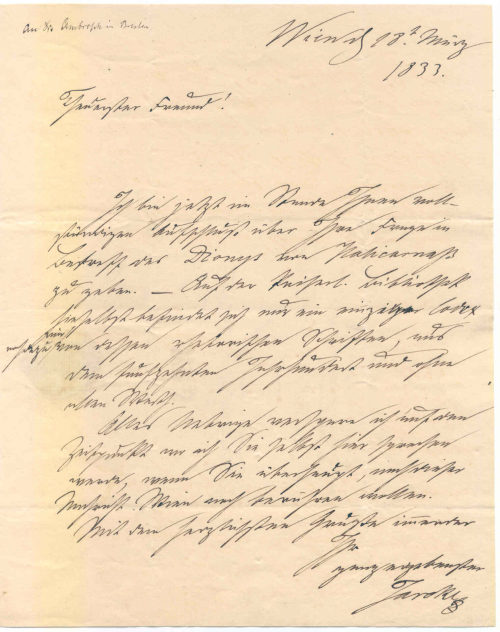 An Dr. Ambrosch in Breslau
Wien d 18t März
1833.
Theuerster Freund!
Ich bin jetzt im Stande Ihnen voll-
ständigen Aufschluß über Ihre Frage in
Betreff des Dionys von Halicarnaß
zu geben. — Auf der Kaiserl. Bibliothek
hieselbst befindet sich nur ein einziger Codex
von dessen rhetorischen Schriften, aus
dem funfzehnten Jahrhundert und ohne
allen Werth.
Alles Uebrige verspare ich auf den
Zeitpunkt wo ich Sie selbst hier sprechen
werde, wenn Sie überhaupt, nach dieser
Nachricht Wien noch berühren wollen.
Mit dem herzlichsten Gruße immerdar
Ihr
ganz ergebenster
Jarcke